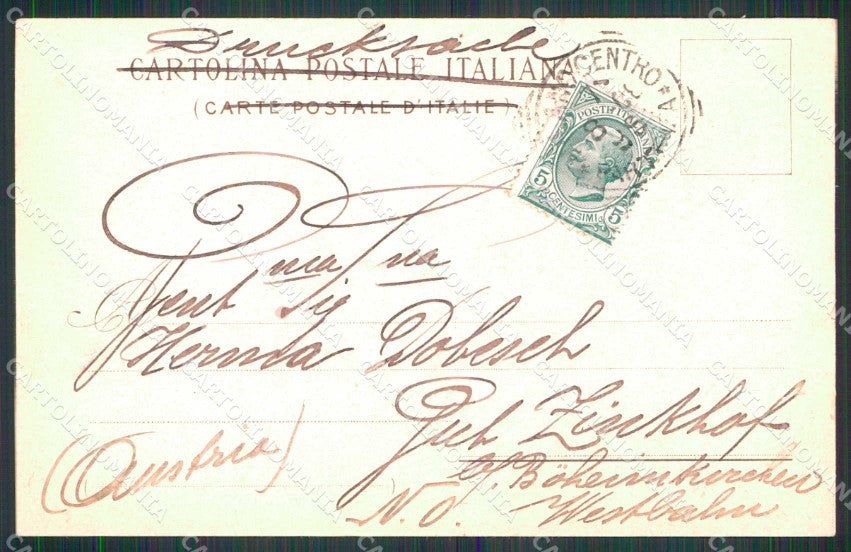 Drucksache
CARTOLINA POSTALE ITALIANA
(CARTE POSTALE D'ITALIE)
CENTRO
POSTE ITALIANE
5 CENTESIMI 5
Gma Sna
Gent Sig
Herma Dobesch
Gut Zinkhof
Böheimkirchen
Westbahn
N. O.
(Austria)
CARTOLINOMANIA